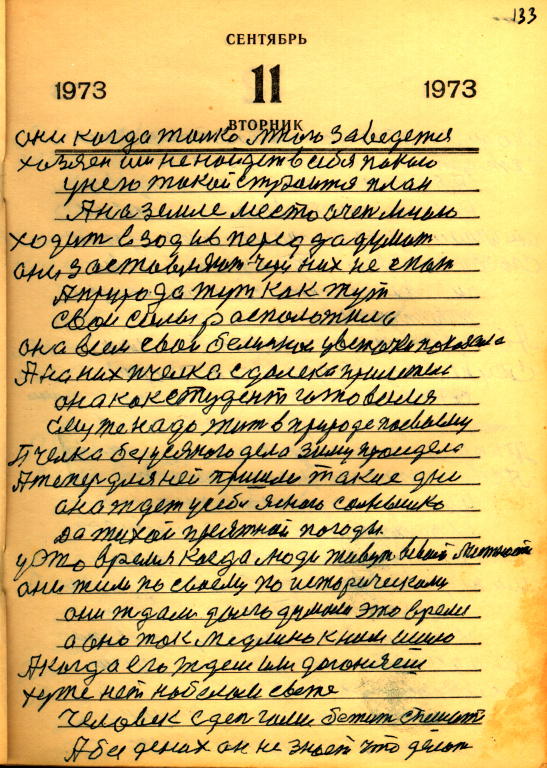 133
СЕНТЯБРЬ
1973 11 1973
ВТОРНИК
они когда толко заведется
хозяен или не найдет в себя такого
у него такой строится план
А на земле место очен много
ходит взод ив перед да думает
они заставляют чуй них не спат
А природа тут как тут
свои силы расположила
она всем свои белиних цветочки показала
А на них пчелка сдалека прилетел
она как студент готовился
ему то надо жит в природе посвоему
Пчелка безусяного дела зиму просидела
А тепер для ней пришли такие дни
она ждет у себя ясного солнышко
да тихой приятной погоды
у это время когда люди живут в местности
они жили по своему по историческому
они ждали долго думали это время
а оно так медлино к ним шшло
А когда его ждеш или догоняеш
хуже нет на белом свете
человек с ден бежит спешит
А без денах он не знает что делат